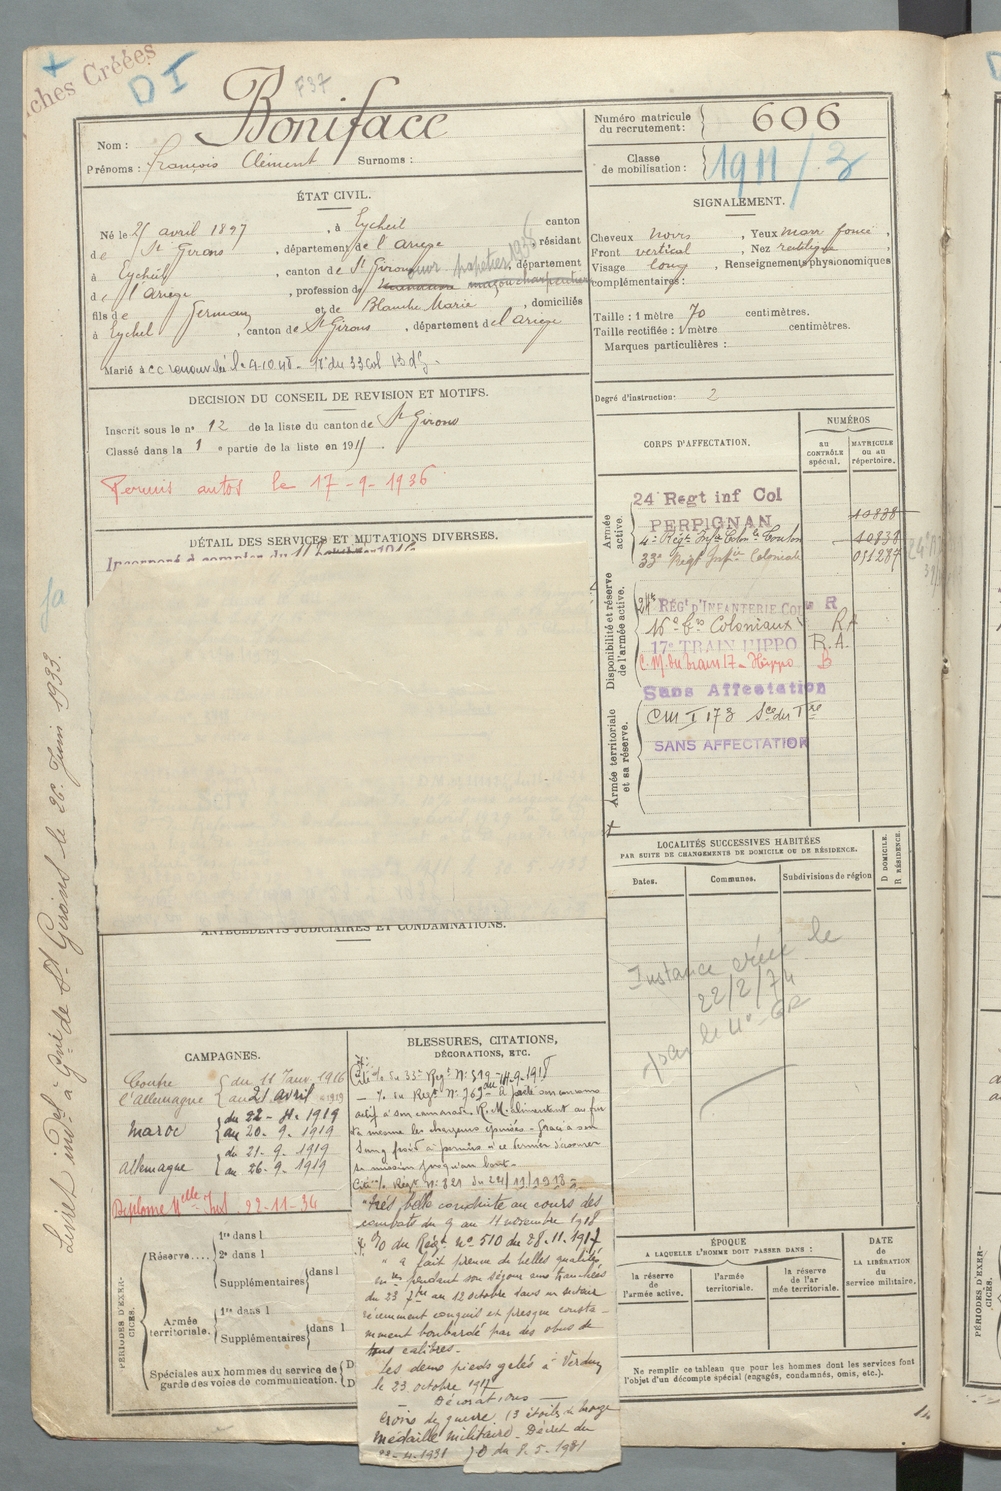 ches Créées
D I
F37
Nom : Boniface
Prénoms : François Clément Surnoms :
Numéro matricule du recrutement : 606
Classe de mobilisation : 1911/3
ÉTAT CIVIL.
Né le 25 avril 1897, à Eycheil canton
de St Girons, département de l'Ariège résidant
à Eycheil, canton de St Girons, département
de l'Ariège, profession de maçon charpentier
ouvr papetier 1936
fils de Germain et de Blanche Marie, domiciliés
à Eychel, canton de St Girons, département de l'Ariège
Marié à
cc renouvelée le 9-10-40
SIGNALEMENT.
Cheveux noirs, Yeux marr foncé,
Front vertical, Nez rectiligne
Visage long, Renseignements physionomiques
complémentaires :
Taille : 1 mètre 70 centimètres.
Taille rectifiée : 1 mètre centimètres.
Marques particulières :
Degré d'instruction : 2
DECISION DU CONSEIL DE REVISION ET MOTIFS.
Inscrit sous le n° 12 de la liste du canton de St Girons
Classé dans la 1e partie de la liste en 191
Permis autos le 17-9-1936
DÉTAIL DES SERVICES ET MUTATIONS DIVERSES.
Incorporé à compter du 11
CORPS D'AFFECTATION.
NUMÉROS
au CONTRÔLE spécial.
MATRICULE ou au répertoire.
Armée active.
24e Regt inf Col
PERPIGNAN
10838
4e Régt Infie Colle Toulon 10838
33e Régt Infie Coloniale 051287
Disponibilité et réserve de l'armée active.
24e RÉGt D'INFANTERIE COL R
Coloniaux R.A
17e TRAIN HIPPO R.A.
C.M. du train 17 - Hippo B
Sans Affectation
Armée territoriale et sa réserve.
CM I 173
SANS AFFECTATION
LOCALITÉS SUCCESSIVES HABITÉES
PAR SUITE DE CHANGEMENTS DE DOMICILE OU DE RÉSIDENCE.
Dates. Communes. Subdivisions de région D DOMICILE. R RÉSIDENCE.
Instance créée le
22/2/74
par le
ANTÉCÉDENTS JUDICIAIRES ET CONDAMNATIONS.
CAMPAGNES.
Contre du 11 Janv. 1916
l'Allemagne au 21 avril 1919
Maroc du 22-4-1919
au 20-9-1919
Allemagne du 21-9-1919
au 26-9-1919
Diplome Melle Inf. 22-11-34
BLESSURES, CITATIONS,
DÉCORATIONS, ETC.
Cité % du 33e Régt N: 519 du 14-9-1918
% du Régt N: 769 du
actif à son camarade F.M. alimentant au fur
et à mesure les chargeurs épuisés - Grâce à son
sang froid a permis à ce dernier d'assurer
sa mission jusqu'au bout -
Cité % Régt N: 821 du 24/11/1918 :
"très belle conduite au cours des
combats du 9 au 11 novembre 1918
% du Régt n° 510 du 28.11.1917
"a fait preuve de belles qualités
pendant son séjour aux tranchées
du 23 7bre au 12 octobre dans un secteur
récemment conquis et presque constamment
bombardé par des obus de
tous calibres -
les deux pieds gelés à Verdun
le 23 octobre 1917
Décorations
Croix de guerre (3 étoiles de bronze
Médaille militaire - Décret du
22-4-1931 JO du 8.5.1931
PÉRIODES D'EXERCICES.
Réserve.... 1re dans l
2e dans l
Supplémentaires dans l
Armée territoriale. 1re dans l
Supplémentaires dans l
Spéciales aux hommes du service de garde des voies de communication. D
D
ÉPOQUE
A LAQUELLE L'HOMME DOIT PASSER DANS :
la réserve de l'armée active.
l'armée territoriale.
la réserve de l'armée territoriale.
DATE de LA LIBÉRATION du service militaire.
Ne remplir ce tableau que pour les hommes dont les services font l'objet d'un décompte spécial (engagés, condamnés, omis, etc.).
Livret indel à Gnie de St Girons le 26 Juin 1933.
PÉRIODES D'EXERCICES.